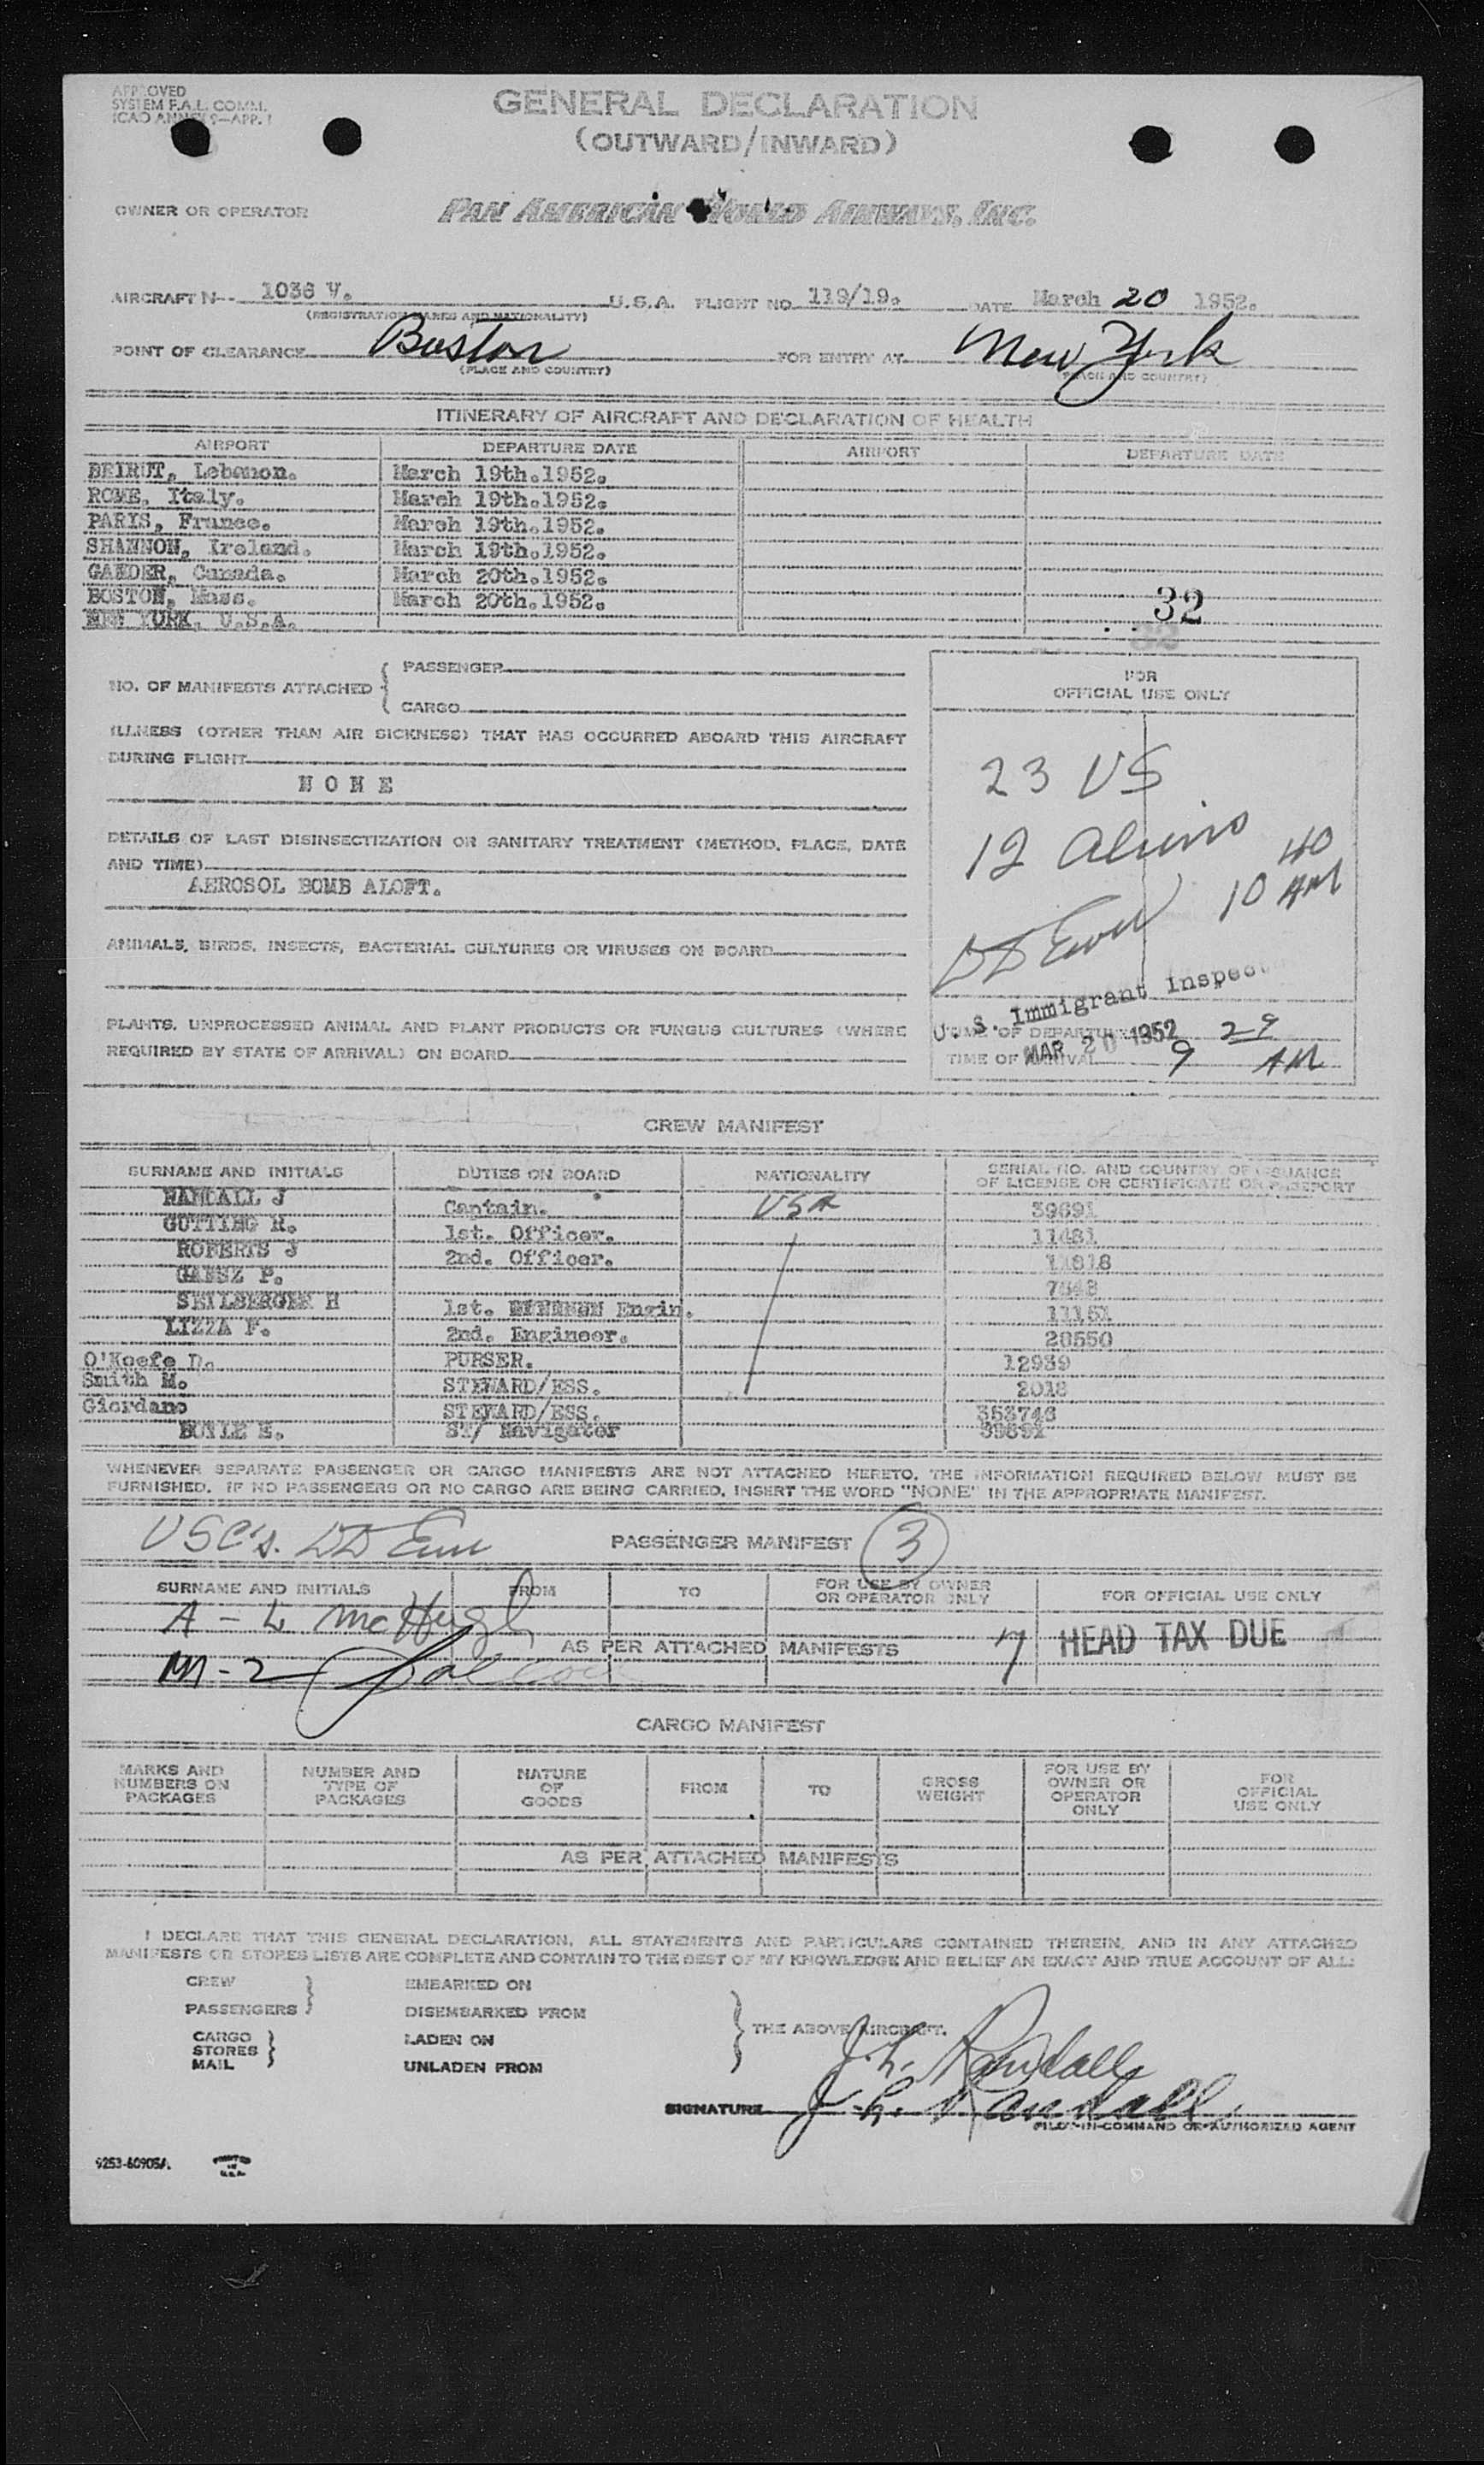 APPROVED
SYSTEM F.A.L. COMM.
ICAO ANNEX 9—APP. 1
GENERAL DECLARATION
(OUTWARD/INWARD)
OWNER OR OPERATOR PAN AMERICAN WORLD AIRWAYS, INC.
AIRCRAFT N-- 1036 V. U.S.A. FLIGHT NO. 119/19. DATE March 20 1952.
(REGISTRATION MARKS AND NATIONALITY)
POINT OF CLEARANCE Boston FOR ENTRY AT New York
(PLACE AND COUNTRY) (PLACE AND COUNTRY)
ITINERARY OF AIRCRAFT AND DECLARATION OF HEALTH
AIRPORT DEPARTURE DATE AIRPORT DEPARTURE DATE
BEIRUT, Lebanon. March 19th.1952.
ROME, Italy. March 19th.1952.
PARIS, France. March 19th.1952.
SHANNON, Ireland. March 19th.1952.
GANDER, Canada. March 20th.1952.
BOSTON, Mass. March 20th.1952. 32
NEW YORK, U.S.A. 32
NO. OF MANIFESTS ATTACHED { PASSENGER
CARGO
FOR
OFFICIAL USE ONLY
ILLNESS (OTHER THAN AIR SICKNESS) THAT HAS OCCURRED ABOARD THIS AIRCRAFT
DURING FLIGHT
NONE
23 US
DETAILS OF LAST DISINSECTIZATION OR SANITARY TREATMENT (METHOD, PLACE, DATE
AND TIME)
AEROSOL BOMB ALOFT.
12 Aliens
10 40 AM
ANIMALS, BIRDS, INSECTS, BACTERIAL CULTURES OR VIRUSES ON BOARD
U. S. Immigrant Inspect
PLANTS, UNPROCESSED ANIMAL AND PLANT PRODUCTS OR FUNGUS CULTURES (WHERE
REQUIRED BY STATE OF ARRIVAL) ON BOARD
TIME OF DEPARTURE
MAR 20 1952
TIME OF ARRIVAL 9 29 AM
CREW MANIFEST
SURNAME AND INITIALS DUTIES ON BOARD NATIONALITY SERIAL NO. AND COUNTRY OF ISSUANCE
OF LICENSE OR CERTIFICATE OR PASSPORT
RANDALL J Captain. USA 39691
GUTTING R. 1st. Officer. 11481
ROBERTS J 2nd. Officer.
P.
H 1st. Engin. 11151
LIZZA F. 2nd. Engineer. 20550
O'Keefe D. PURSER. 12939
Smith M. STEWARD/ESS. 2018
Giordano STEWARD/ESS. 353746
BOYLE E. ST/ Navigator
WHENEVER SEPARATE PASSENGER OR CARGO MANIFESTS ARE NOT ATTACHED HERETO, THE INFORMATION REQUIRED BELOW MUST BE
FURNISHED. IF NO PASSENGERS OR NO CARGO ARE BEING CARRIED, INSERT THE WORD "NONE" IN THE APPROPRIATE MANIFEST.
USC's. PASSENGER MANIFEST 3
SURNAME AND INITIALS FROM TO FOR USE BY OWNER
OR OPERATOR ONLY FOR OFFICIAL USE ONLY
A - 4 McHugh
AS PER ATTACHED MANIFESTS 7 HEAD TAX DUE
M - 2
CARGO MANIFEST
MARKS AND
NUMBERS ON
PACKAGES NUMBER AND
TYPE OF
PACKAGES NATURE
OF
GOODS FROM TO GROSS
WEIGHT FOR USE BY
OWNER OR
OPERATOR
ONLY FOR
OFFICIAL
USE ONLY
AS PER ATTACHED MANIFESTS
I DECLARE THAT THIS GENERAL DECLARATION, ALL STATEMENTS AND PARTICULARS CONTAINED THEREIN, AND IN ANY ATTACHED
MANIFESTS OR STORES LISTS ARE COMPLETE AND CONTAIN TO THE BEST OF MY KNOWLEDGE AND BELIEF AN EXACT AND TRUE ACCOUNT OF ALL:
CREW EMBARKED ON
PASSENGERS DISEMBARKED FROM
CARGO LADEN ON
STORES
MAIL UNLADEN FROM
THE ABOVE AIRCRAFT.
J. L. Randall
SIGNATURE J. L. Randall
PILOT-IN-COMMAND OR AUTHORIZED AGENT
9253-60905A. PRINTED
IN
U.S.A.